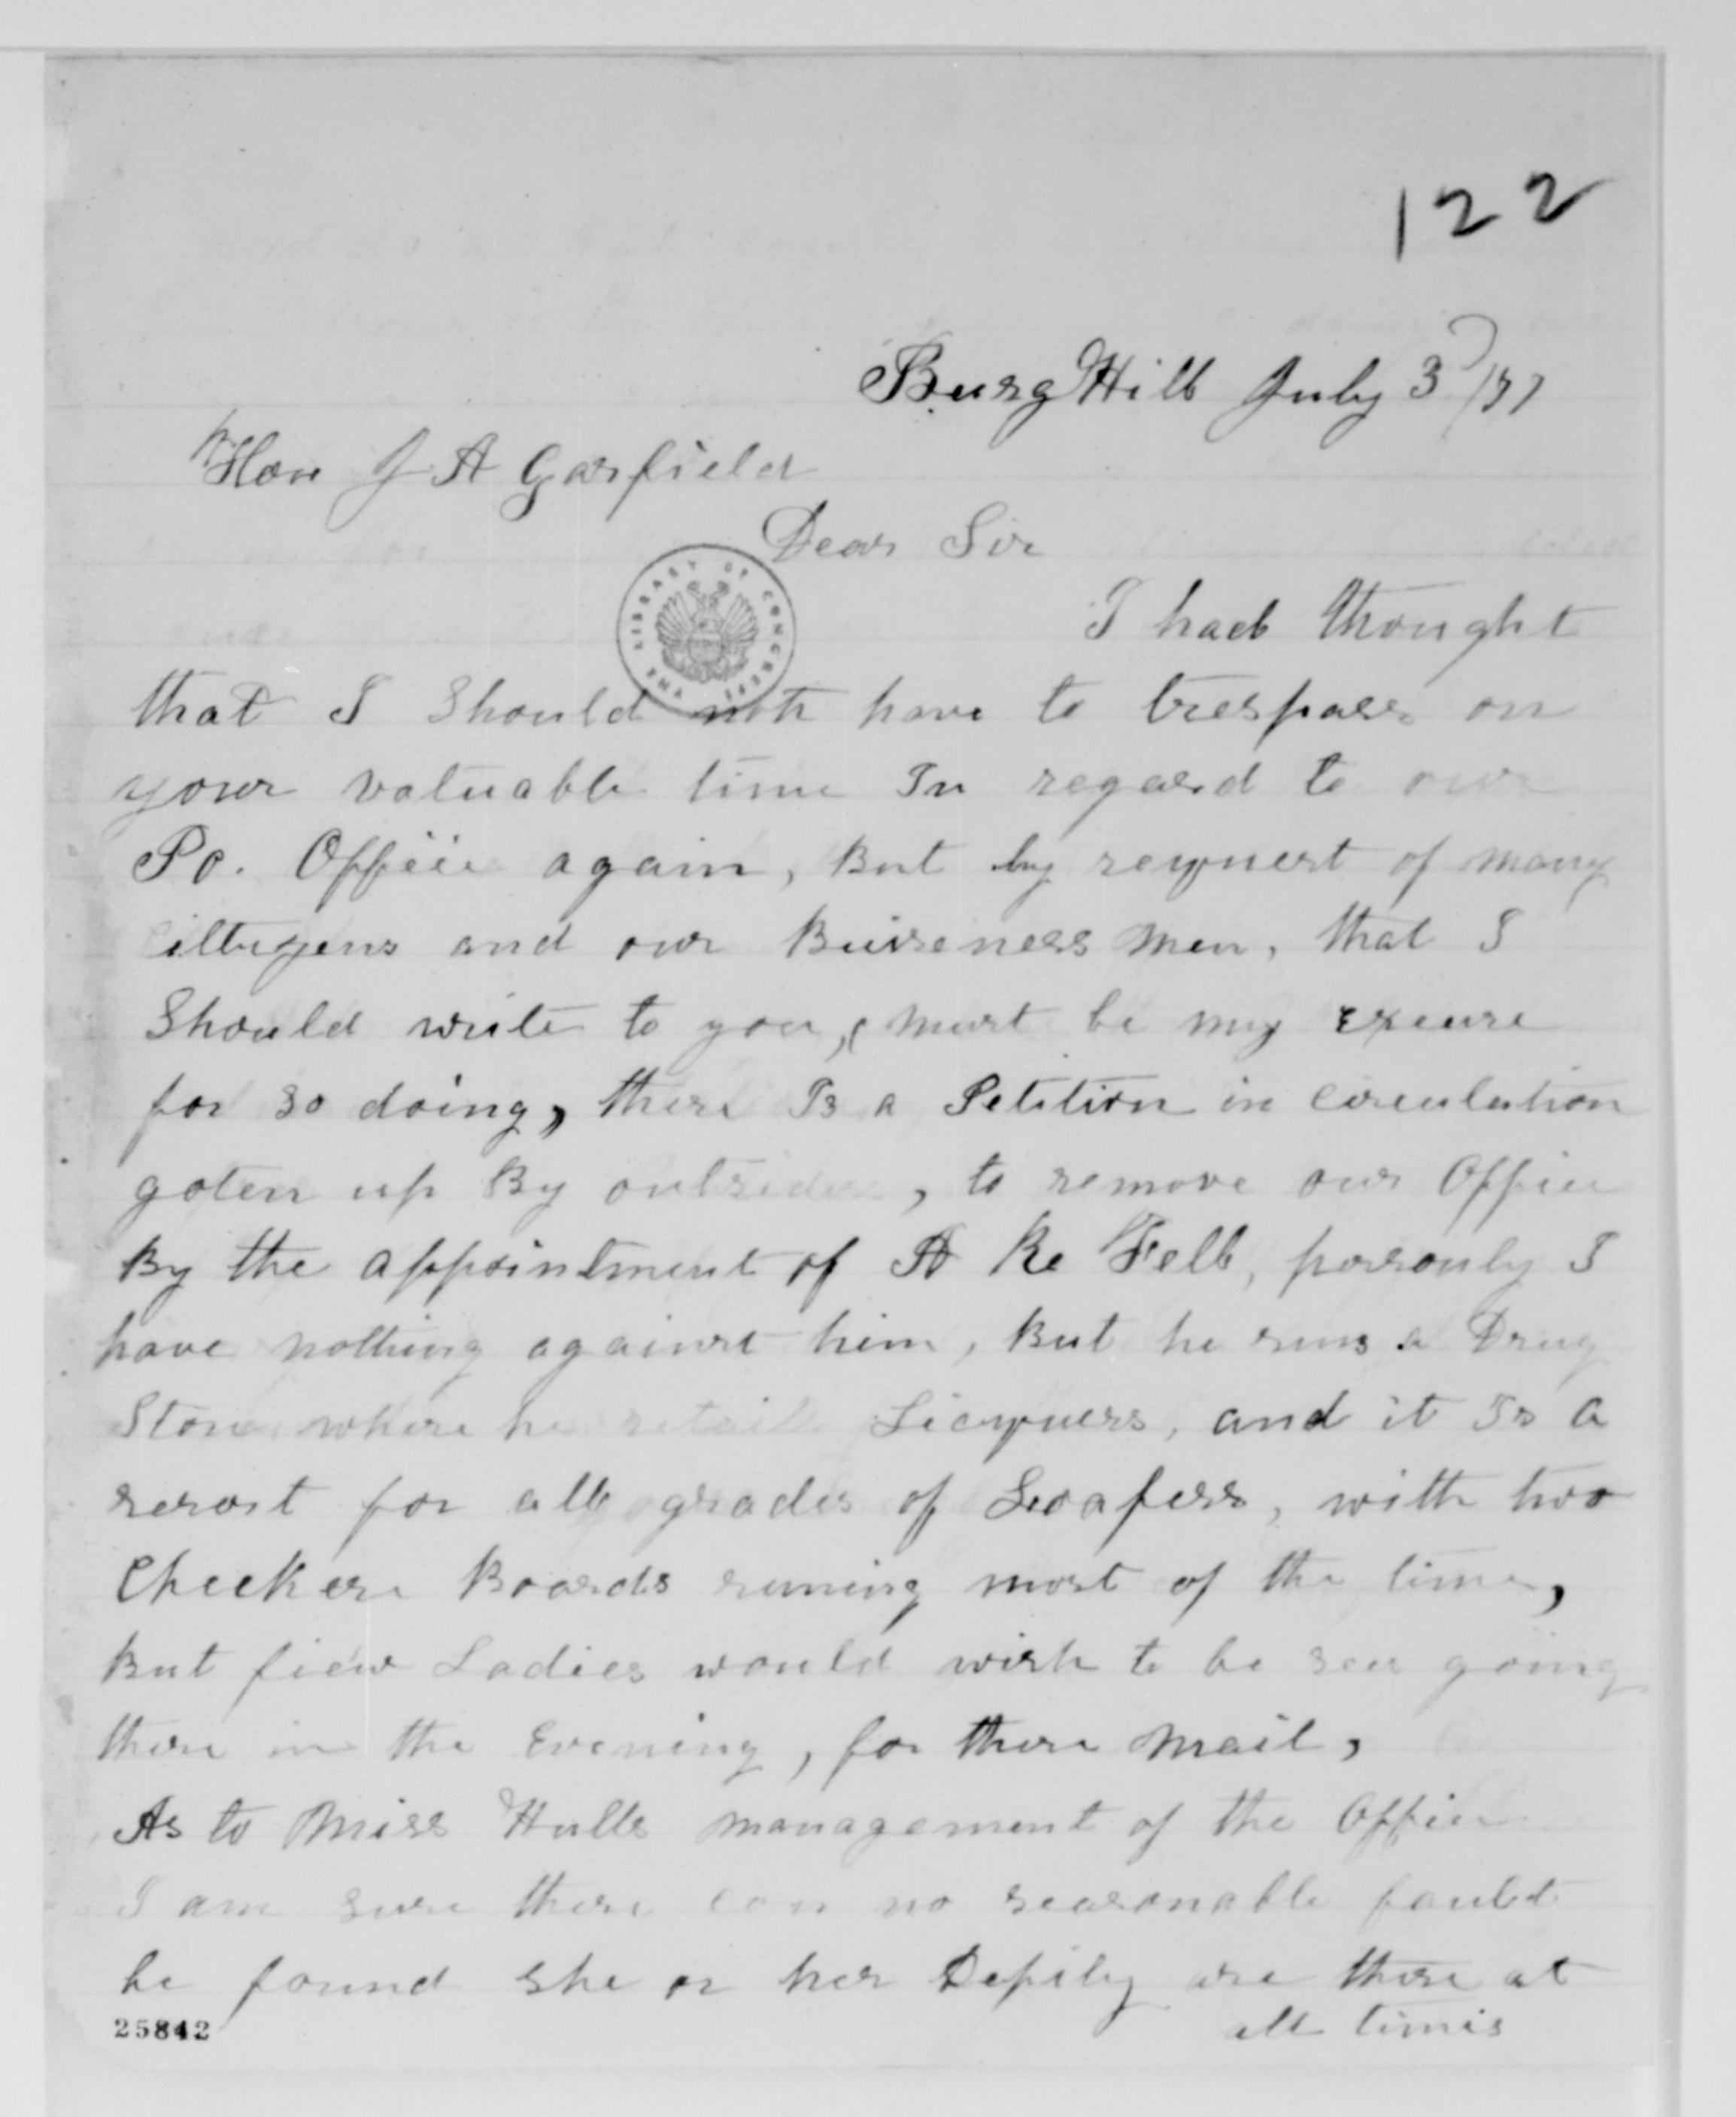 122
Burg Hill July 3d /77
Hon J A Garfield
Dear Sir
THE LIBRARY OF CONGRESS
I had thought
that I Should not have to trespass on
your valuable time In regard to our
Po. Office again, But by reqnest of many
citizens and our Buiseness men, that I
Should write to you, must be my excuse
for so doing, there Is a Petition in circulation
goten up By outsiders, to remove our Office
By the appointment of A Fell, personly I
have nothing against him, But he runs a Drug
Store where he retails Licquers, and it Is a
resort for all grades of Loafers, with two
Checkere Boards runing most of the time,
But fiew Ladies would wish to be seen going
there in the Evening, for there mail,
As to Miss Hulls management of the Office
I am sure there can no reasonable fault
be found she or her Depity are there at
all times
25842